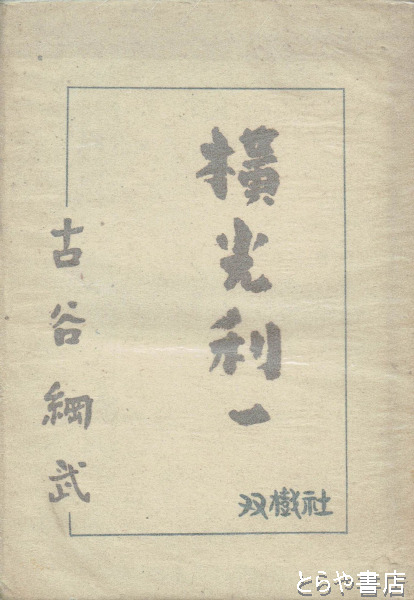 橫光利一
古谷綱武
双樹社
とらや書店